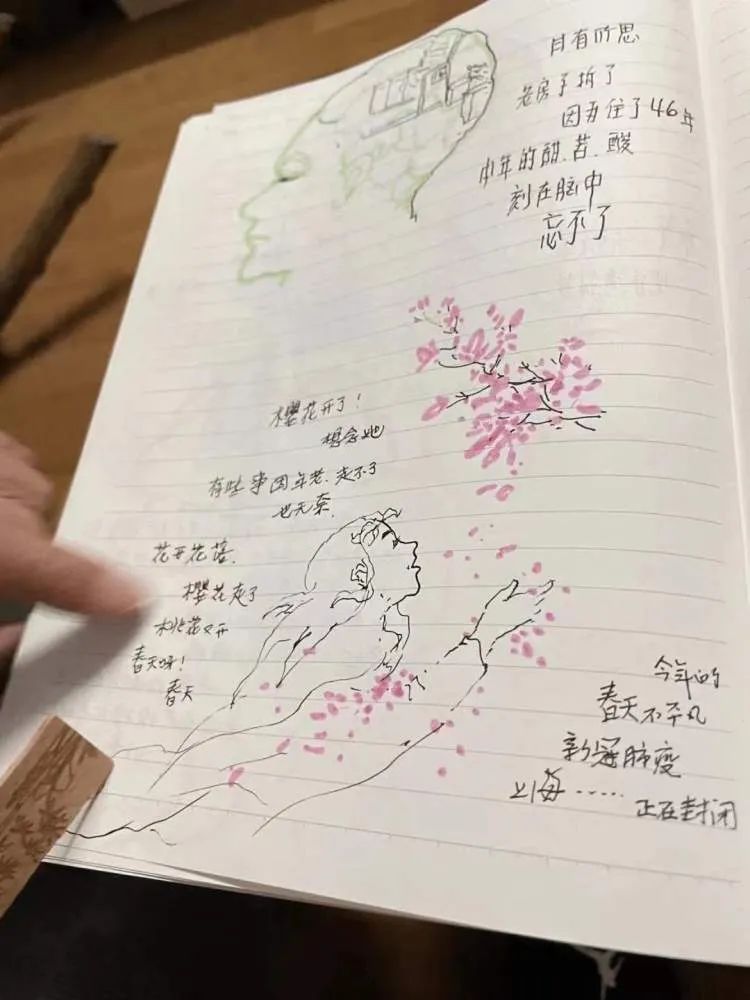 日有所思
老房子拆了
因为住了46年
中年的甜.苦.酸
刻在脑中
忘不了
樱花开了！
想念她
有些事因年老.走不了
也无奈.
花开花落.
樱花走了
桃花又开
春天呀！
春天
今年的
春天不平凡
新冠肺疫
上海……
正在封闭